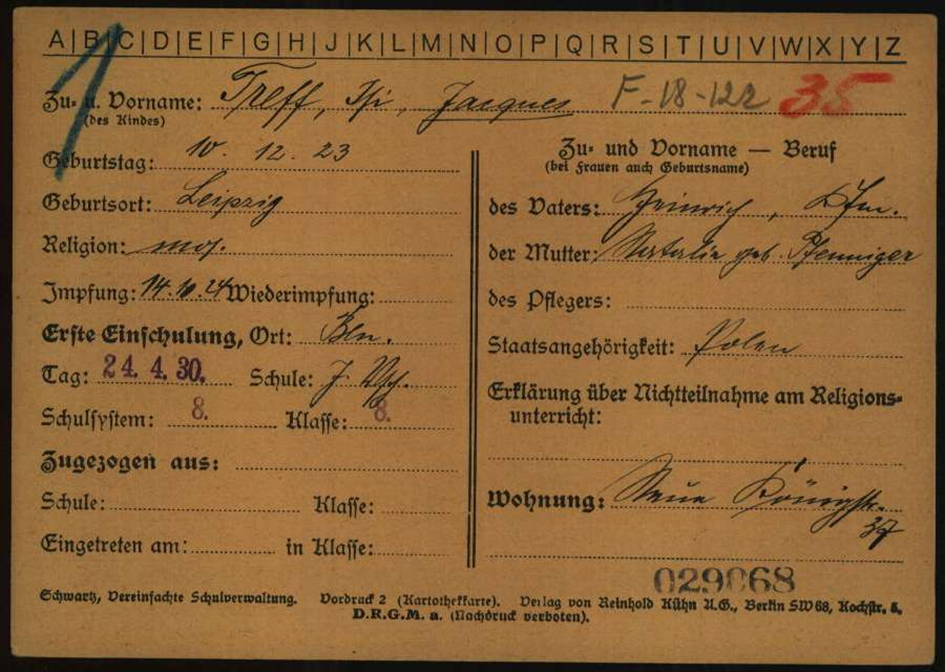 A|B|C|D|E|F|G|H|J|K|L|M|N|O|P|Q|R|S|T|U|V|W|X|Y|Z
1
Zu- u. Vorname: Treff, Isi, Jacques F-18-122 35
(des Kindes)
Geburtstag: 10. 12. 23
Geburtsort: Leipzig
Religion: mos.
Impfung: 14.10.24 Wiederimpfung:
Erste Einschulung, Ort: Bln.
Tag: 24. 4. 30. Schule: J.
Schulsystem: 8. Klasse: 8.
Zugezogen aus:
Schule: Klasse:
Eingetreten am: in Klasse:
Zu- und Vorname — Beruf
(bei Frauen auch Geburtsname)
des Vaters: Heinrich, Kfm.
der Mutter: Natalie geb. Pfenniger
des Pflegers:
Staatsangehörigkeit: Polen
Erklärung über Nichtteilnahme am Religions-
unterricht:
Wohnung: Neue Königstr.
37
029068
Schwartz, Vereinfachte Schulverwaltung. Vordruck 2 (Karthothekkarte). Verlag von Reinhold Kühn A.G., Berlin SW 68, Kochstr. 5.
D.R.G.M. a. (Nachdruck verboten).